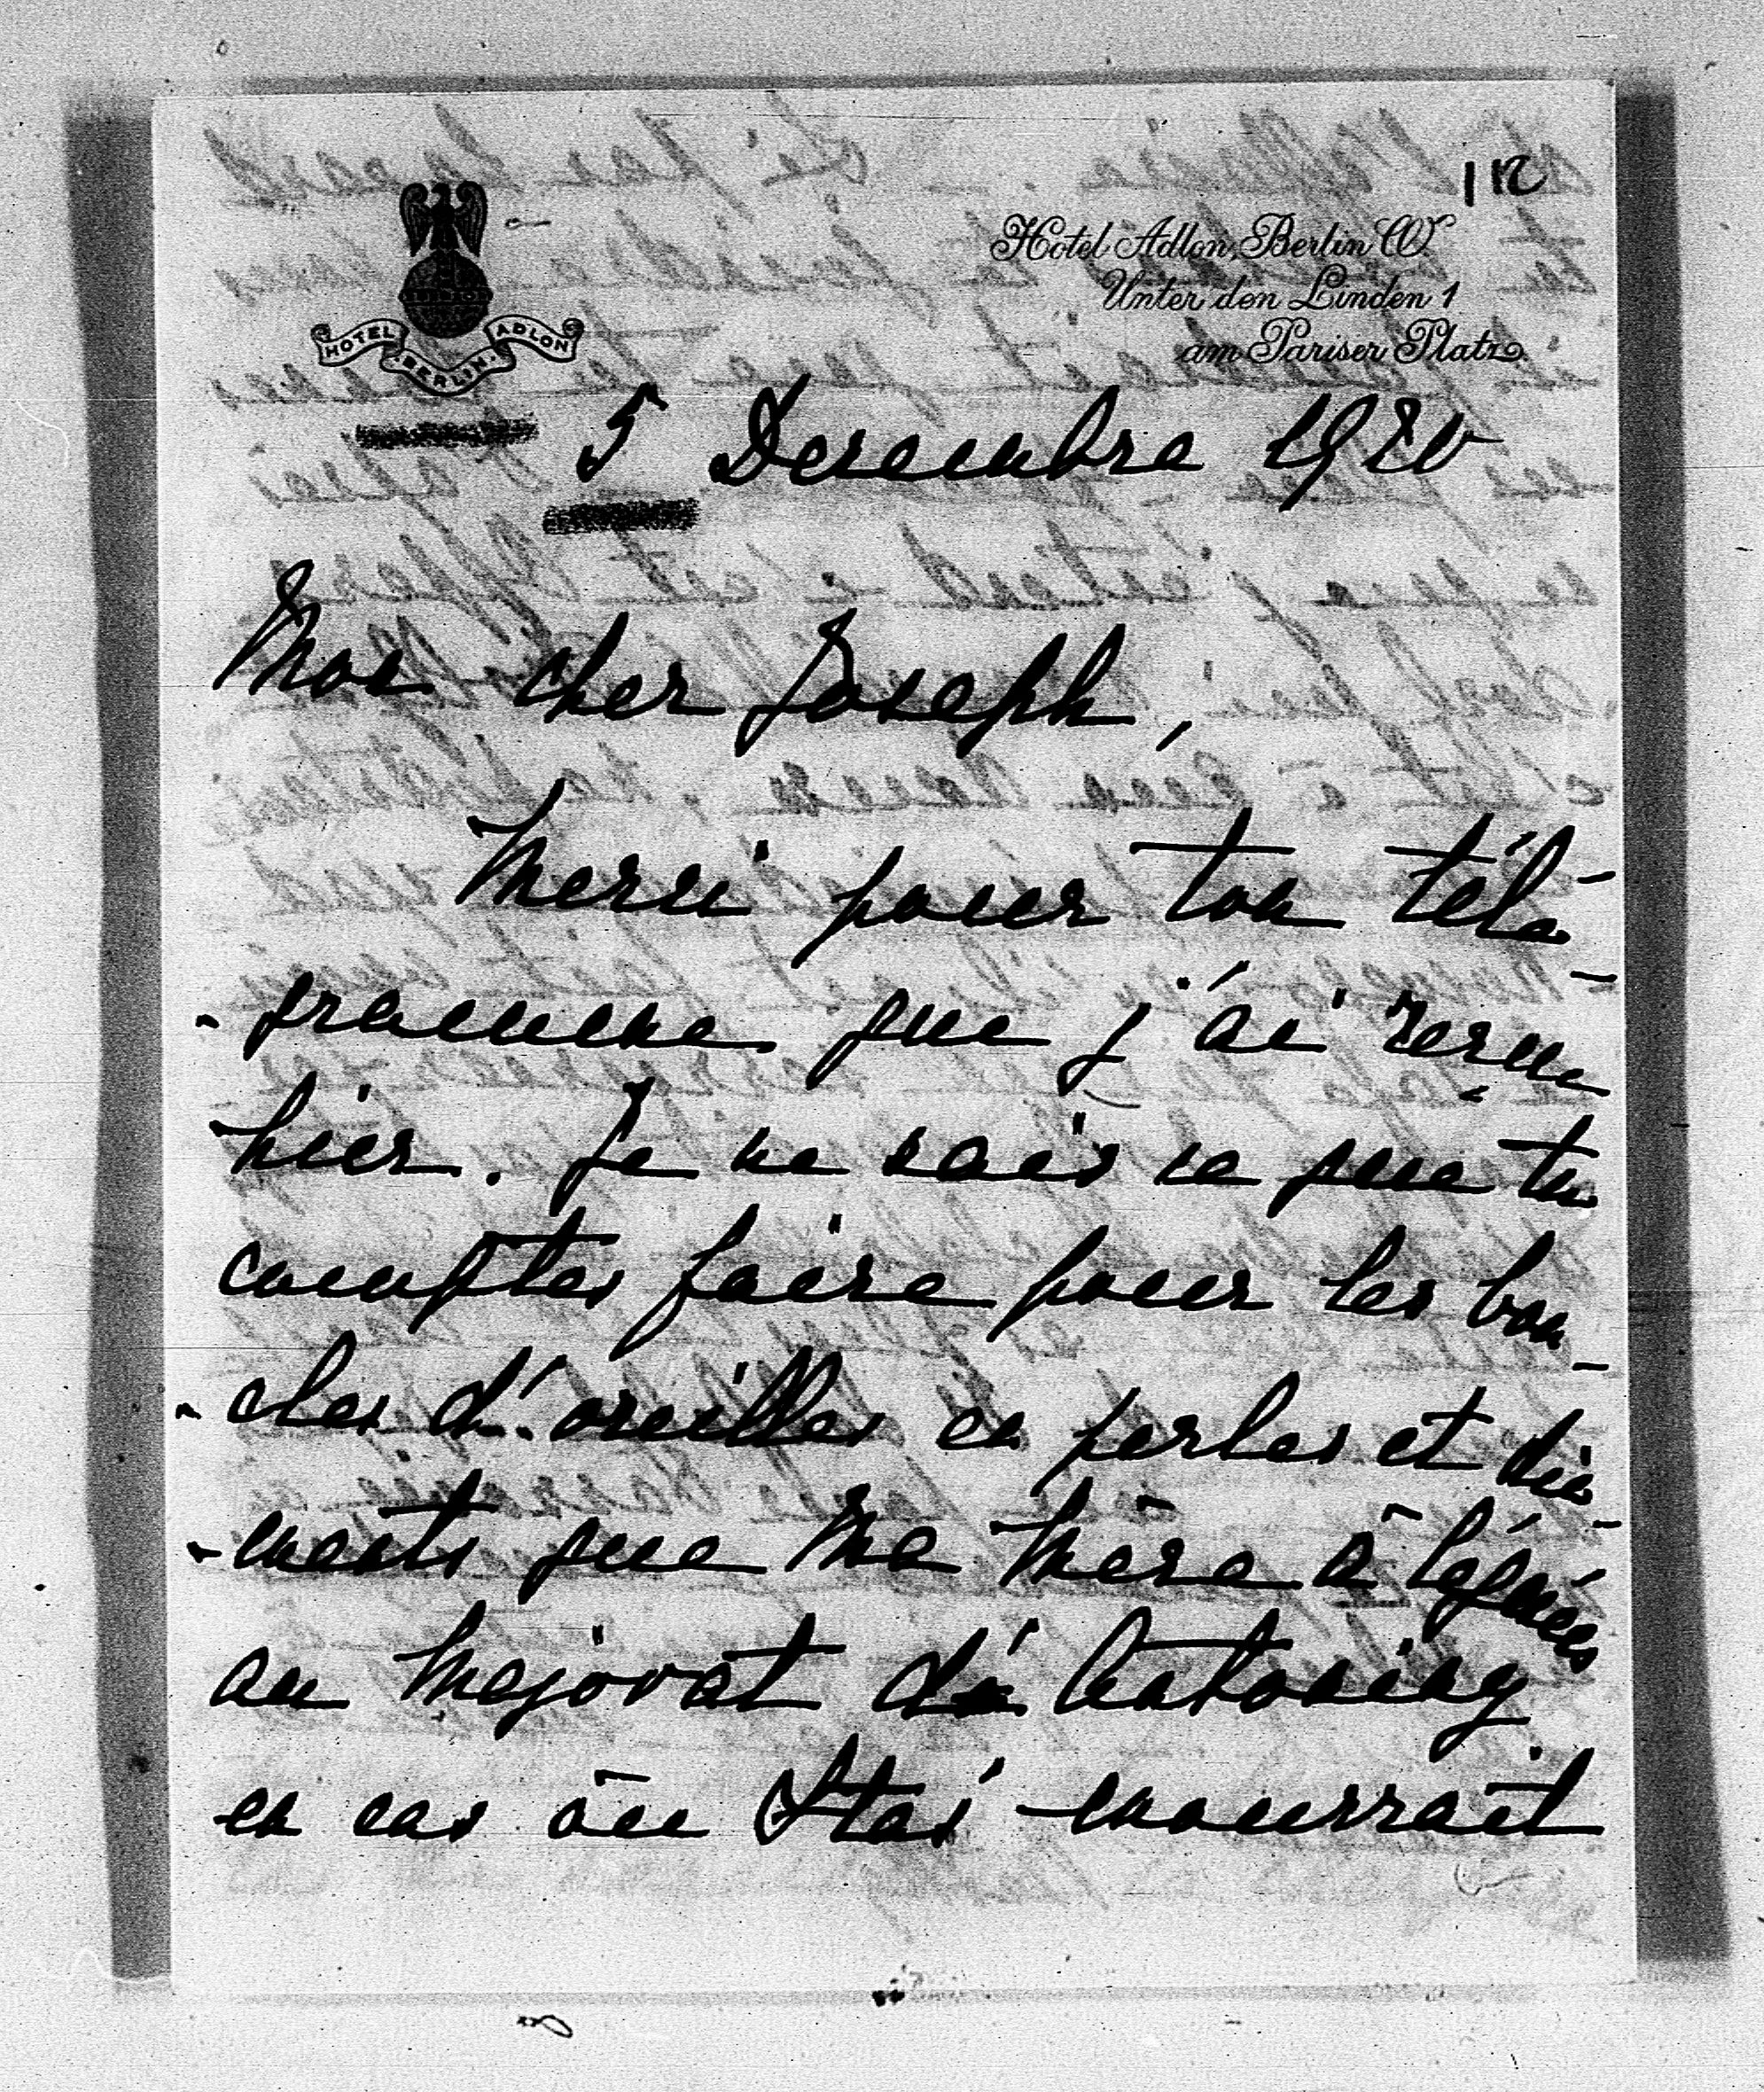 112
Hotel Adlon, Berlin W.
Unter den Linden 1
am Pariser Platz
HOTEL ADLON
BERLIN
5 Decembre 1920
Mon cher Joseph,
Merci pour ton télé-
-gramme que j'ai reçu
hier. Je ne sais ce que tu
comptes faire pour les bou-
-cles d'oreilles en perles et dia-
-mants que Ma Mère à légués
au Majorat d'Antoniny
en cas ou Stas mourrait